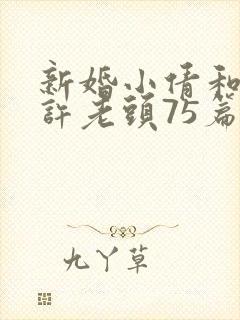 新婚小倩和
許老頭75篇
九丫草